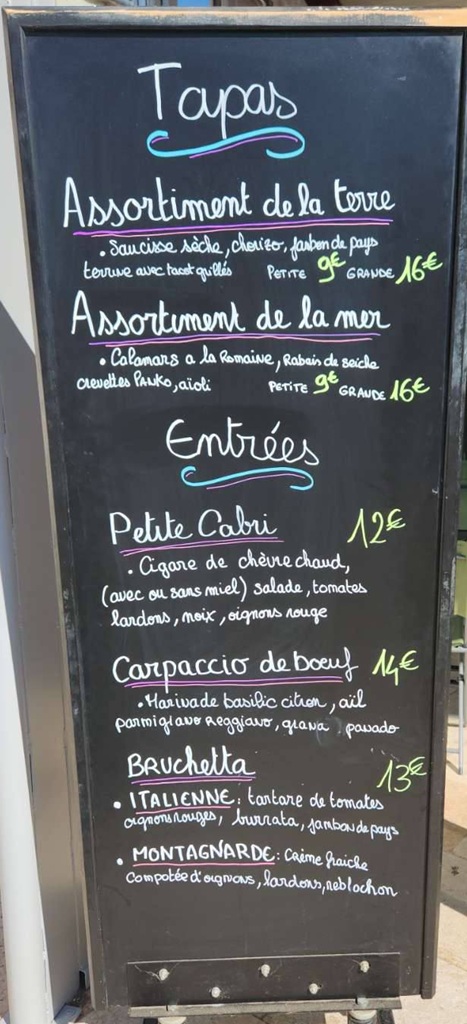 Tapas
Assortiment de la terre
• Saucisse sèche, chorizo, jambon de pays
terrine avec toast grillés PETITE 9€ GRANDE 16€
Assortiment de la mer
• Calamars a la Romaine, Rabais de seiche
crevettes PANKO, aïoli PETITE 9€ GRANDE 16€
Entrées
Petite Cabri 12€
• Cigare de chèvre chaud,
(avec ou sans miel) salade, tomates
lardons, noix, oignons rouge
Carpaccio de boeuf 14€
• Marinade basilic citron, aïl
parmigiano Reggiano, grana panado
BRuchetta 13€
• ITALIENNE : tartare de tomates
oignons rouges, burrata, jambon de pays
• MONTAGNARDE : Crème fraiche
Compotée d'oignons, lardons, reblochon